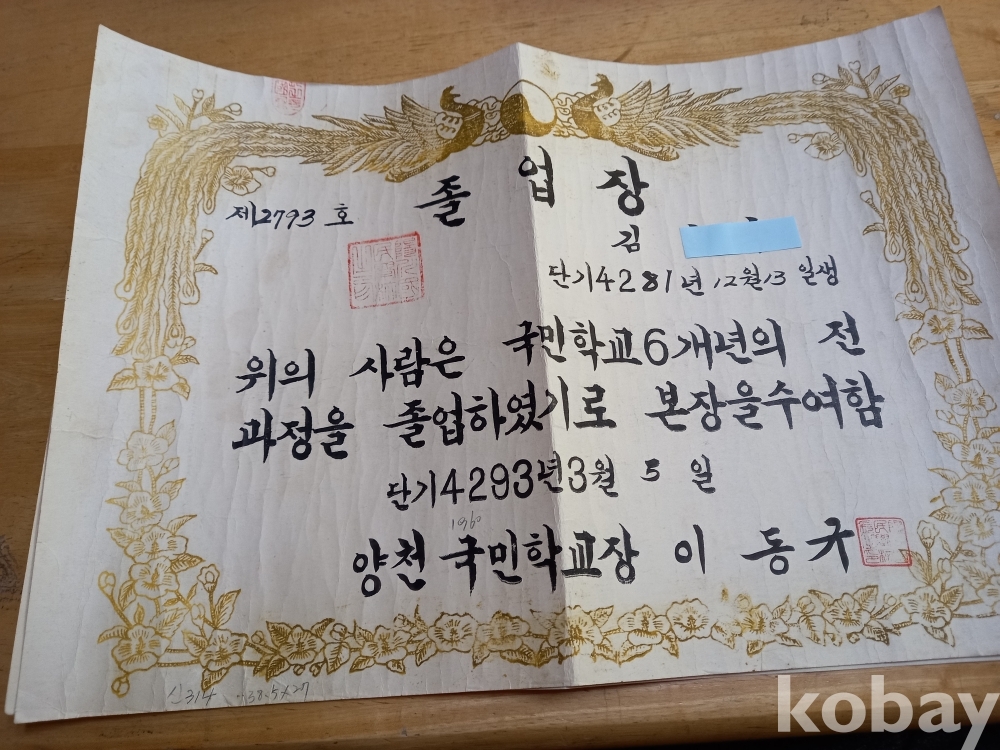 졸업장
제2793호
김
단기4281년 12월13일생
위의 사람은 국민학교6개년의 전
과정을 졸업하였기로 본장을수여함
단기4293년3월 5일
1960
양천 국민학교장 이동규
38.5X27
kobay